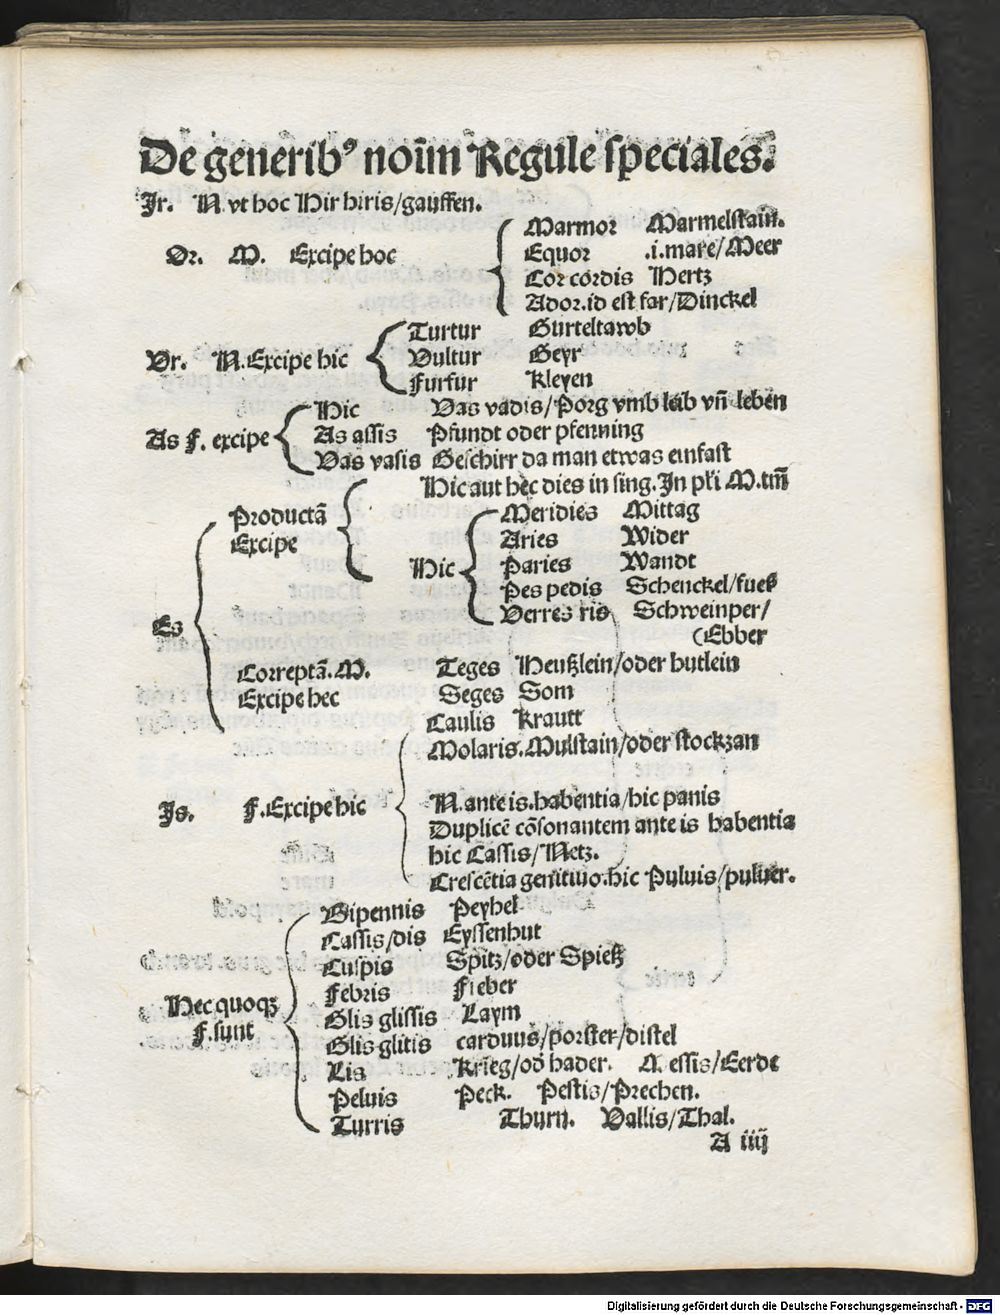 De generib⁹ noĩm Regule speciales.
Ir. N. vt hoc Hir hiris/gauffen.
Or. M. Excipe hoc
Marmor Marmelstain.
Equor .i. mare/Meer
Cor cordis Hertz
Ador. id est far/Dinckel
Vr. N. Excipe hic
Turtur Gurteltawb
Vultur Geyr
Furfur Kleyen
As F. excipe
Hic Vas vadis/Porg vmb leib vñ leben
As assis Pfundt oder pfenning
Vas vasis Geschirr da man etwas einfast
Es
Productã Excipe
Hic aut hec dies in sing. In płi M. tm̃
Hic
Meridies Mittag
Aries Wider
Paries Wandt
Pes pedis Schenckel/fueß
Verres ris Schweinper/
(Ebber
Correptã. M. Excipe hec
Teges Heußlein/oder hutlein
Seges Som
Is. F. Excipe hic
Caulis Krautt
Molaris. Mulstain/oder stockzan
N. ante is. habentia/hic panis
Duplicẽ cõsonantem ante is habentia
hic Cassis/Netz.
Crescẽtia genitiuo. hic Puluis/puluer.
Hec quoqꝫ F. sunt
Bipennis Peyhel
Cassis/dis Eyssenhut
Cuspis Spitz/oder Spieß
Febris Fieber
Glis glissis Laym
Glis glitis carduus/porster/distel
Lis Krieg/od̃ hader. A. essis/Eerde
Peluis Peck. Pestis/Prechen.
Turris Thurn. Vallis/Thal.
A iiij
Digitalisierung gefördert durch die Deutsche Forschungsgemeinschaft - DFG